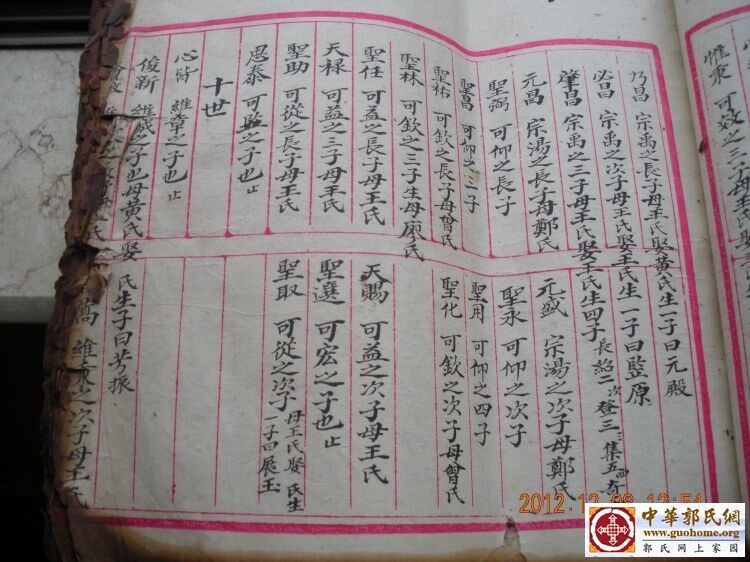 惟東 可效之三子母王
乃昌 宗禹之長子母王氏娶黃氏生一子曰元殿
必昌 宗禹之次子母王氏娶王氏生一子曰監原
肇昌 宗禹之三子母王氏娶王氏生四子長紹二次登三三集五四奇
元昌 宗湯之長子母鄭氏
元盛 宗湯之次子母鄭氏
聖弼 可仰之長子
聖永 可仰之次子
聖昌 可仰之三子
聖用 可仰之四子
聖祐 可欽之長子母曾氏
聖化 可欽之次子母曾氏
聖林 可欽之三子生母廖氏
聖任 可益之長子母王氏
天賜 可益之次子母王氏
天祿 可益之三子母王氏
聖選 可宏之子也止
聖助 可從之長子母王氏
聖取 可從之次子母王氏娶 氏生一子曰展玉
思泰 可監之子也止
十世
心 維章之子也止
俊新 維咸之子也母黃氏娶 氏生子曰芳振
萬 維東之次子母王氏
2012.12.08 12:54
中華郭氏網
www.guohome.org
郭氏网上家园